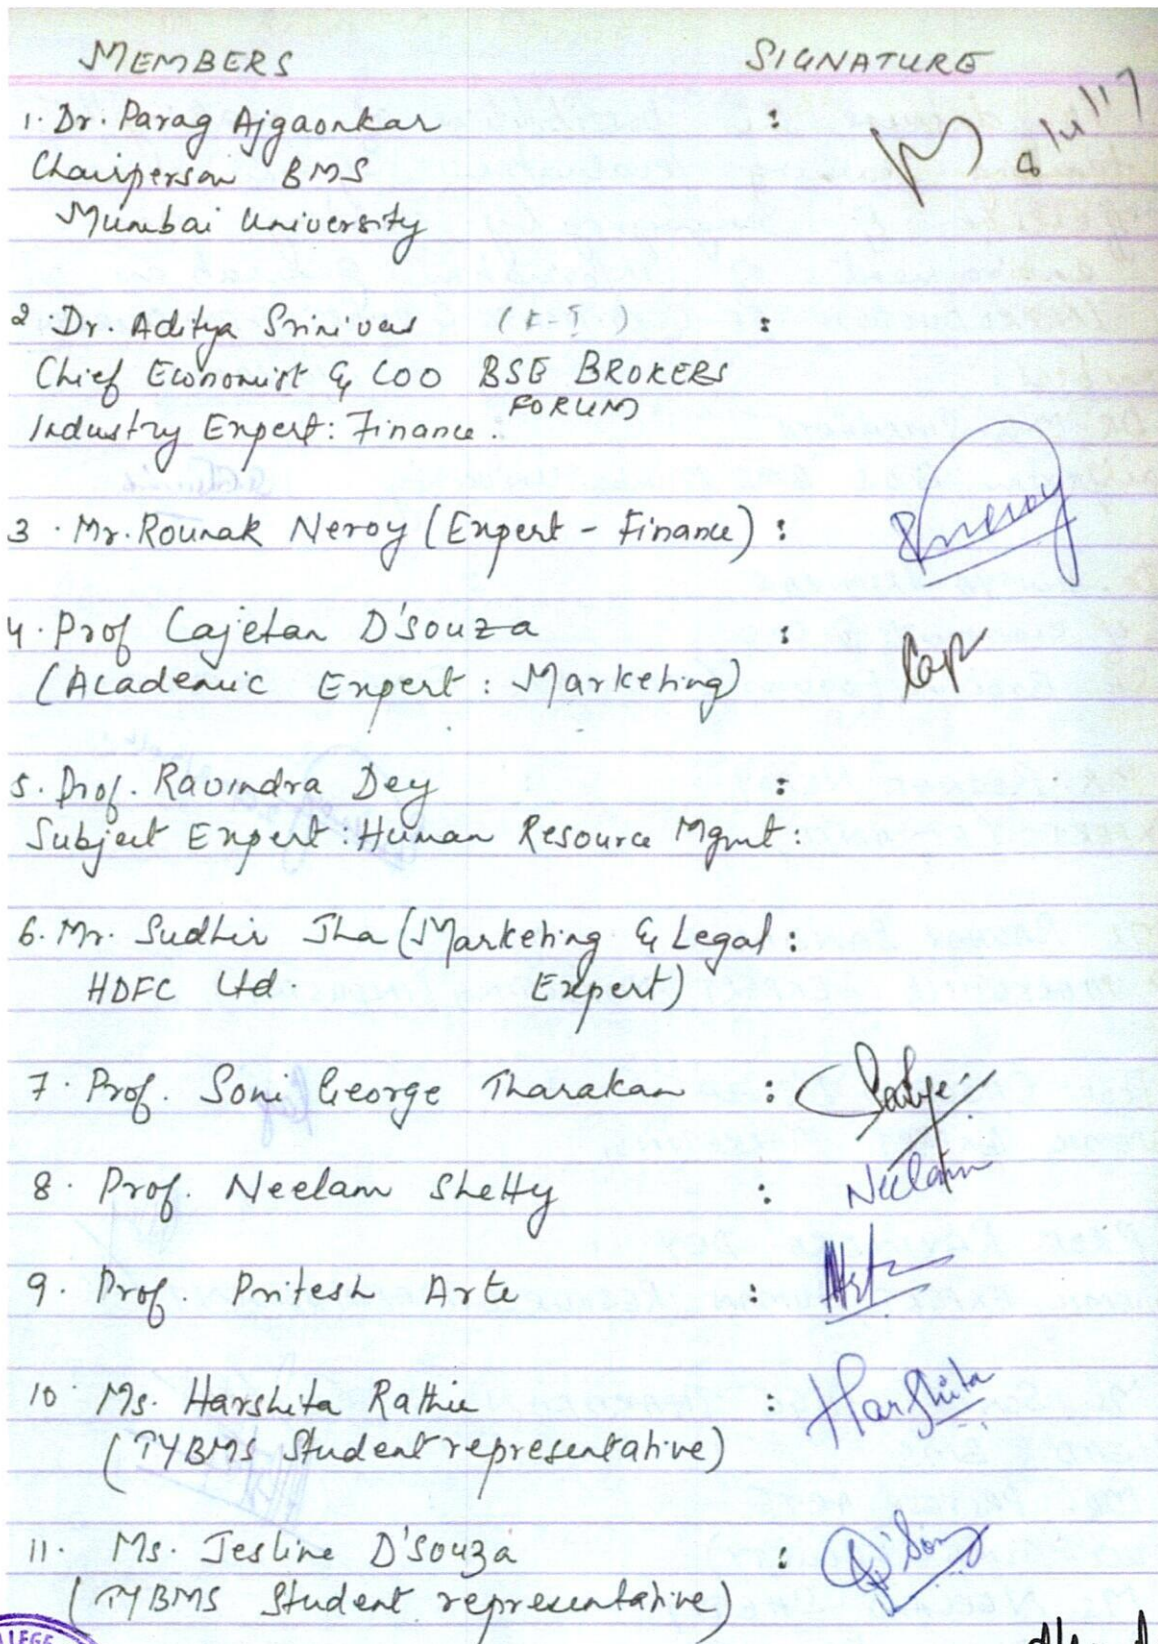 MEMBERS SIGNATURE
1. Dr. Parag Ajgaonkar :
Chairperson BMS
Mumbai University
2. Dr. Aditya Srinivas :
Chief Economist & COO BSE BROKERS
FORUM
Industry Expert: Finance.
3. Mr. Rounak Neroy (Expert - Finance) : Rneroy
4. Prof Cajetan D'souza :
(Academic Expert : Marketing)
5. Prof. Ravindra Dey :
Subject Expert: Human Resource Mgmt:
6. Mr. Sudhir Jha (Marketing & Legal :
HDFC Ltd. Expert)
7. Prof. Soni George Tharakan :
8. Prof. Neelam Shetty : Neelam
9. Prof. Pritesh Arte :
10 Ms. Harshita Rathie : Harshita
(TYBMS Student representative)
11. Ms. Jesline D'souza : D'Souza
(TYBMS Student representative)